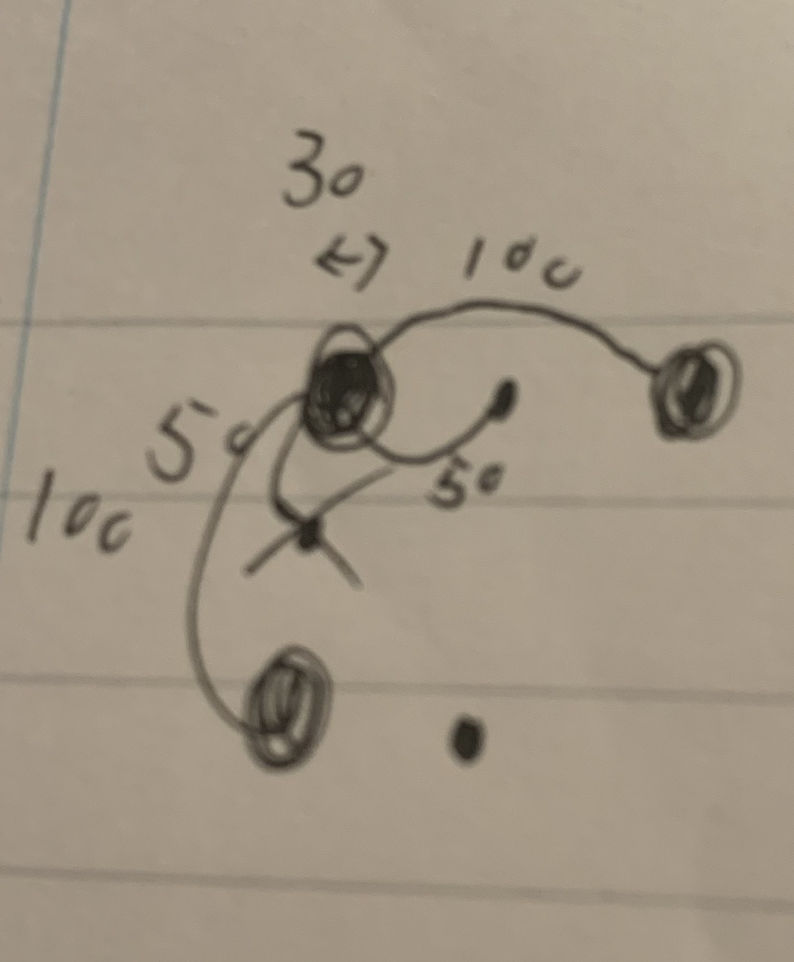 30
100
50
50
100